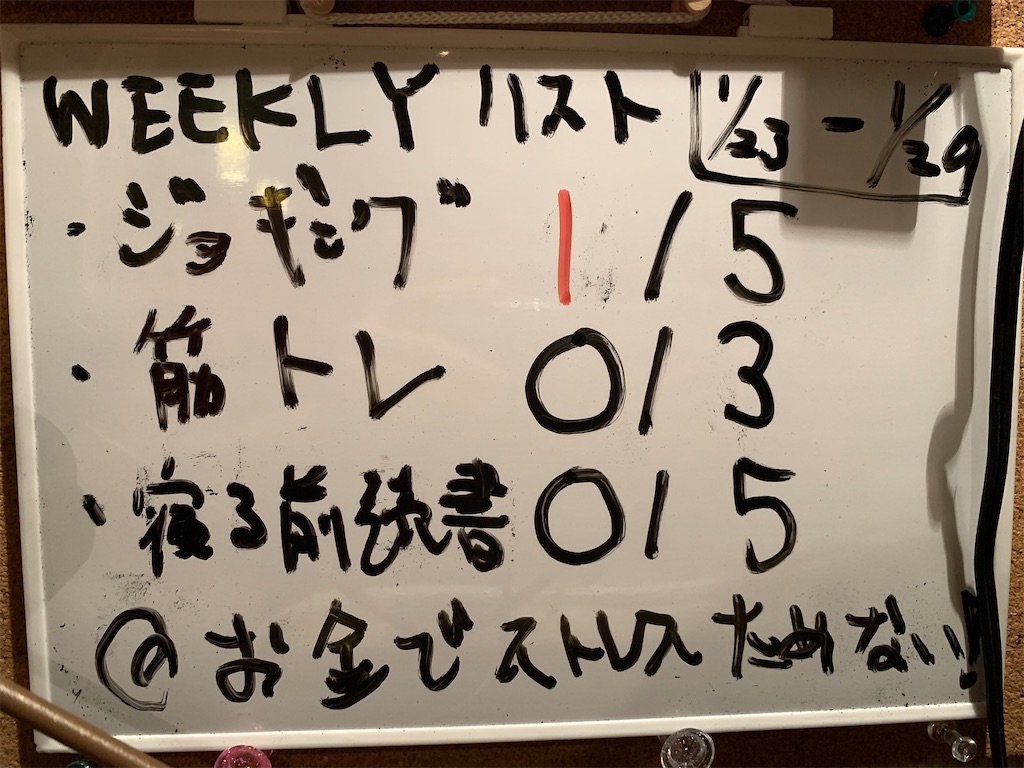 WEEKLY リスト 11/23 - 1/29
・ジョギング 1/5
・筋トレ 0/3
・寝る前読書 0/5
@お金でストレスためない!!